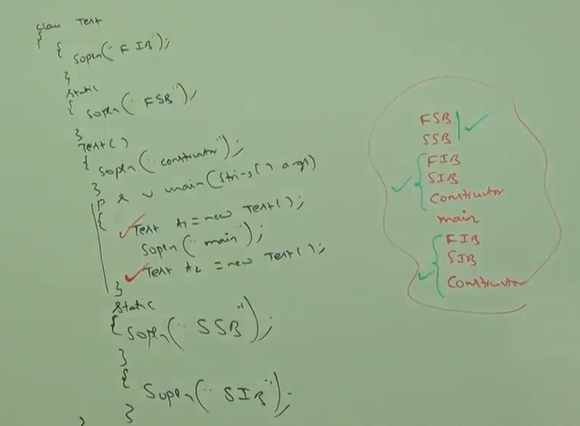 class Test
{
{
Sopln("FIB");
}
static
{
Sopln("FSB");
}
Test()
{
Sopln("constructor");
}
P S V main(String[] args)
{
Test t1 = new Test();
Sopln("main");
Test t2 = new Test();
}
static
{
Sopln("SSB");
}
{
Sopln("SIB");
}
}
FSB
SSB
FIB
SIB
Constructor
main
FIB
SIB
Constructor